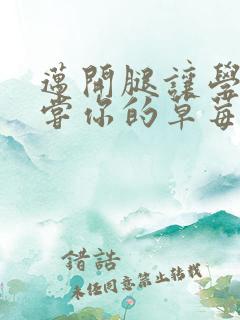 邁開腿讓學
嘗你的草莓
錯誥
未經同意禁止轉載